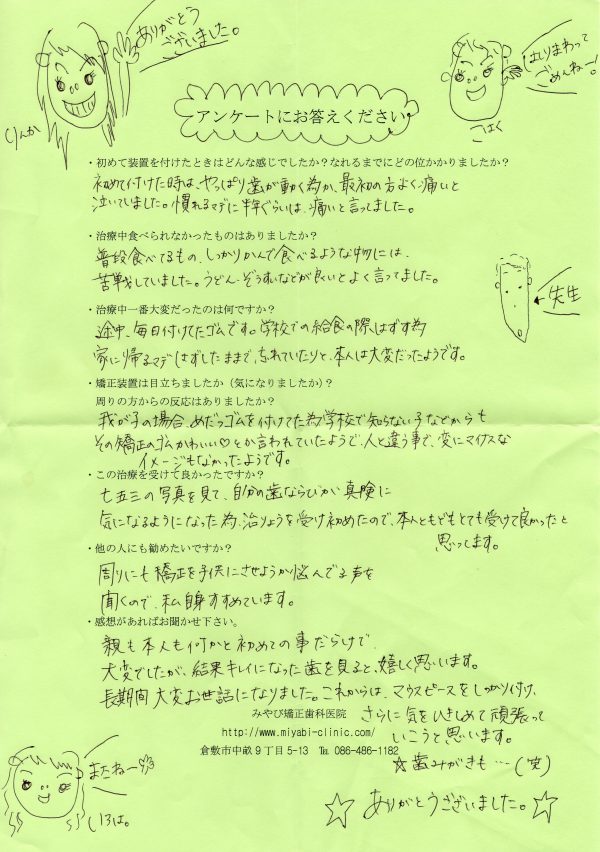 ありがとう
ございました。
りんか
はしりまわって
ごめんねー!
こはく
アンケートにお答えください
・初めて装置を付けたときはどんな感じでしたか?なれるまでにどの位かかりましたか?
初めて付けた時は、やっぱり歯が動く為か、最初の方よく痛いと
泣いていました。慣れるマデに半年ぐらいは、痛いと言ってました。
・治療中食べられなかったものはありましたか?
普段食べてるもの、しっかりかんで食べるような物には、
苦戦していました。うどん、ぞうすいなどが良いとよく言ってました。
先生
・治療中一番大変だったのは何ですか?
途中、毎日付けてたゴムです。学校での給食の際、はずす為
家に帰るマデはずしたままで、忘れていたりと、本人は大変だったようです。
・矯正装置は目立ちましたか(気になりましたか)?
周りの方からの反応はありましたか?
我が子の場合、めだつゴムを付けてた為、学校で知らない子などからも
その矯正のゴムかわいい♡とか言われていたようで、人と違う事で、変にマイナスな
イメージもなかったようです。
・この治療を受けて良かったですか?
七五三の写真を見て、自分の歯ならびが真険に
気になるようになった為、治りょうを受け初めたので、本人ともどもとても受けて良かったと
思ってます。
・他の人にも勧めたいですか?
周りにも矯正を子供にさせようか悩んでる声を
聞くので、私自身すすめています。
・感想があればお聞かせ下さい。
親も本人も何かと初めての事だらけで、
大変でしたが、結果キレイになった歯を見ると、嬉しく思います。
長期間大変お世話になりました。これからは、マウスピースをしっかり付け、
さらに気をひきしめて頑張って
いこうと思います。
☆歯みがきも…(笑)
みやび矯正歯科医院
http://www.miyabi-clinic.com/
倉敷市中畝9丁目5-13 ℡ 086-486-1182
またねー
いろは。
☆ありがとうございました。☆